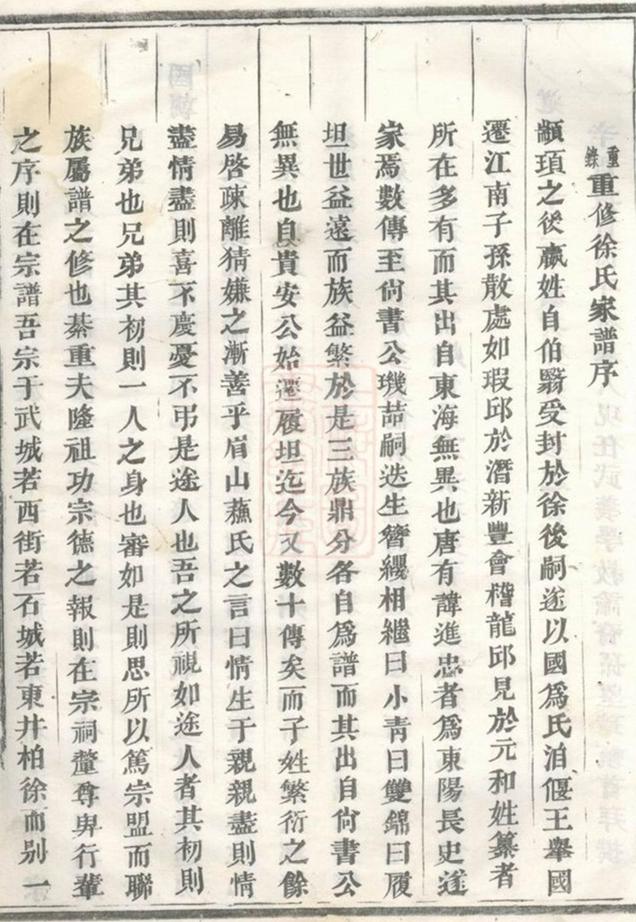 重錄重修徐氏家譜序
顓頊之後嬴姓自伯翳受封於徐後嗣遂以國爲氏洎偃王舉國
遷江南子孫散處如瑕邱於潛新豐會稽龍邱見於元和姓纂者
所在多有而其出自東海無異也唐有諱進忠者爲東陽長史遂
家焉數傳至尙書公璣喆嗣迭生簪纓相繼曰小青曰雙錦曰履
坦世益遠而族益繁於是三族鼎分各自爲譜而其出自尙書公
無異也自貴安公始遷履坦迄今又數十傳矣而子姓繁衍之餘
易啓疎離猜嫌之漸善乎眉山蘓氏之言曰情生于親親盡則情
盡情盡則喜不慶憂不弔是途人也吾之所視如途人者其初則
兄弟也兄弟其初則一人之身也審如是則思所以篤宗盟而聯
族屬譜之修也綦重夫隆祖功宗德之報則在宗祠釐尊卑行輩
之序則在宗譜吾宗于武城若西街若石城若東井柏徐而别一